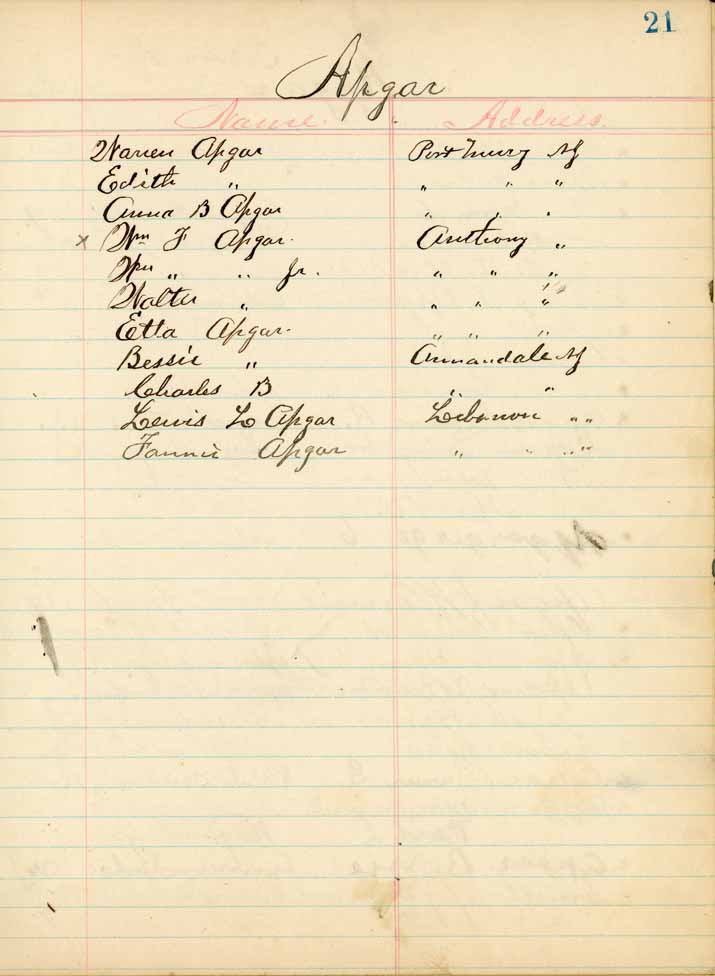 21
Apgar
Name. Address.
Warren Apgar Port Murry NJ
Edith " " " "
Anna B Apgar " " "
x Wm F Apgar. Anthony "
Wm " " Jr. " " "
Walter " " " "
Etta Apgar. " " "
Bessie " Annandale NJ
Charles B " "
Lewis L Apgar Lebanon " "
Fannie Apgar " " " "